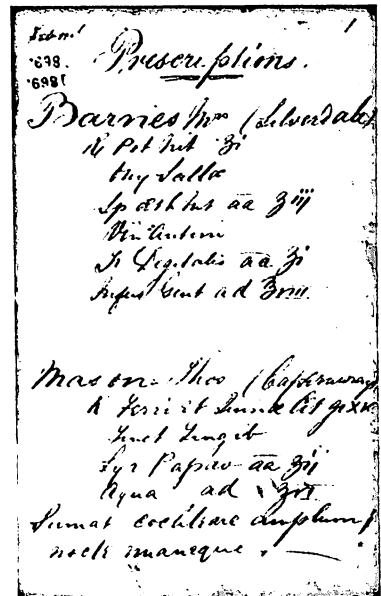 1
Prescriptions.
Barnes Mrs (Silverdale)
℞ Pot Nit ʒi
Oxy Scillæ
Sp Æth Nit aa ʒiij
Vin Antim
Tr Digitalis aa ʒi
Infus Gent ad ℥viii
Mason Thos (Capernwray)
℞ Ferri et Quinæ Cit grxx
Tinct Zingib
Syr Papav aa ʒij
Aqua ad
Sumat cochleare amplum j
nocte maneque.